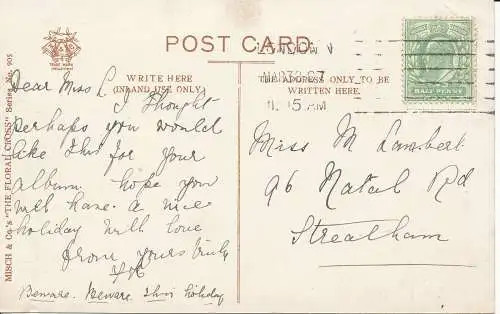 POST CARD.
WRITE HERE
(INLAND USE ONLY)
THE ADDRESS ONLY TO BE
WRITTEN HERE.
LONDON
MAR 30 07
11.15 AM
HALF PENNY
MISCH & Co.'s "THE FLORAL CROSS" Series No. 905
Dear Miss L
I thought
perhaps you would
like this for your
album. hope you
will have a nice
holiday with love
from yours truly
Beware. Beware. this holiday
Miss M Lambert
96 Natal Rd
Streatham